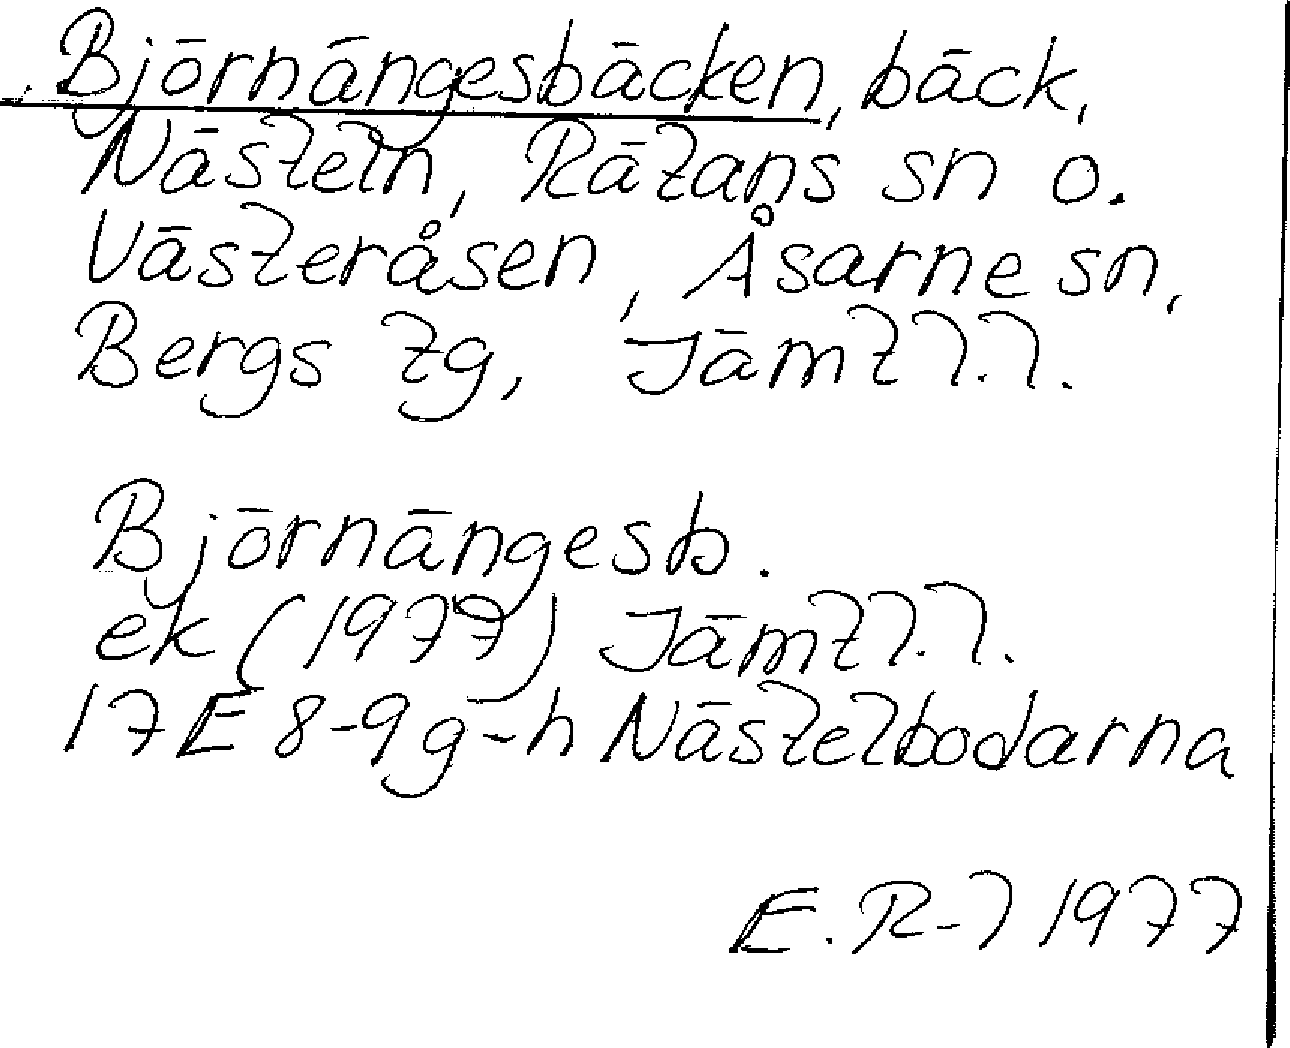 Björnängesbäcken, bäck,
Nästeln, Rätans sn o.
Västeråsen, Åsarne sn,
Bergs tg, Jämtl. l.
Björnängesb.
ek (1977) Jämtl. l.
17E 8-9g-h Nästelbodarna
E. R-l 1977